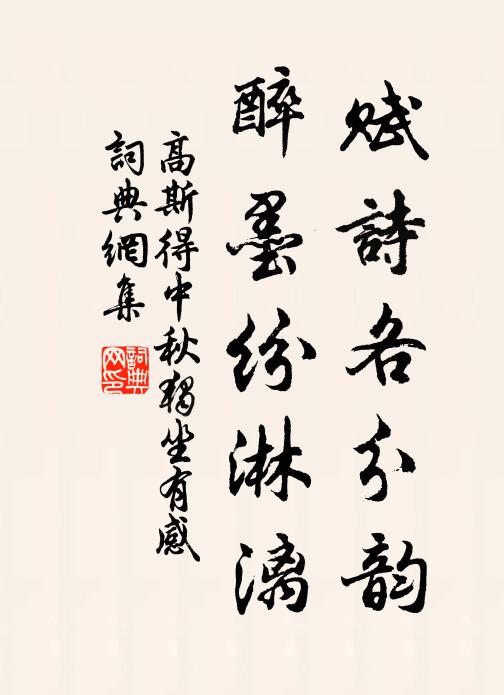 赋詩各分韵
醉墨纷淋漓
高斯得中秋獨坐有感
詞典網集
詞典网印